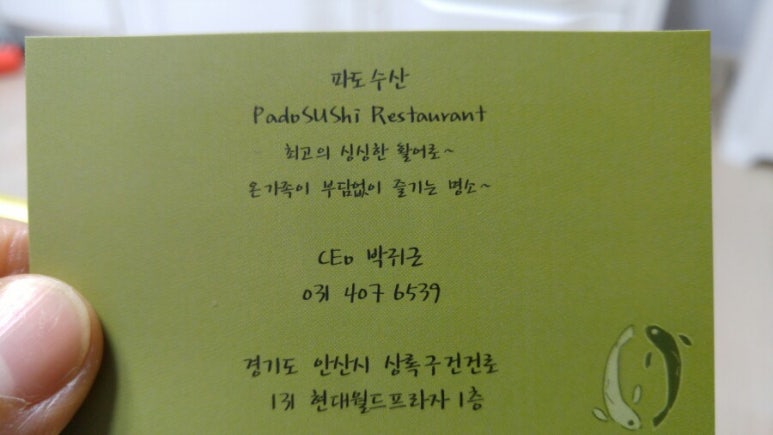 파도수산
PadoSUShi Restaurant
최고의 싱싱한 활어로~
온가족이 부담없이 즐기는 명소~
CEO 박귀근
031 407 6539
경기도 안산시 상록구건건로
131 현대월드프라자 1층